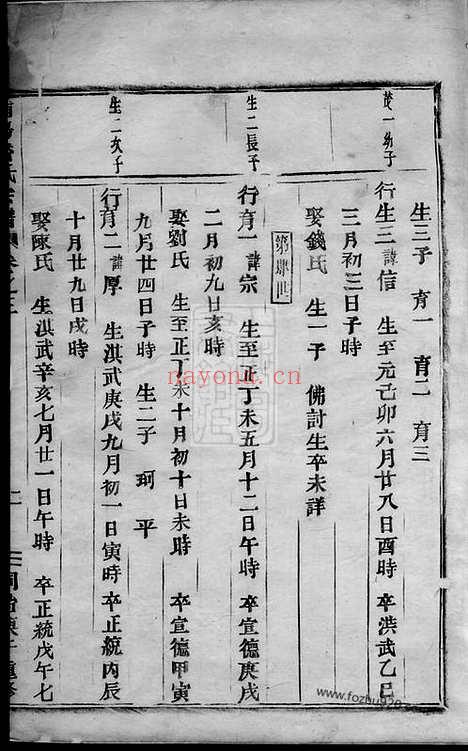 生三子 育一 育二 育三
茂一幼子
行生三諱信 生至元己卯六月廿八日酉時 卒洪武乙巳
三月初三日子時
娶錢氏 生一子 佛討生卒未詳
第肆世
生二長子
行育一諱宗 生至正丁未五月十二日午時 卒宣德庚戌
二月初九日亥時
娶劉氏 生至正丁未十月初十日未時 卒宣德甲寅
九月廿四日子時 生二子 珂 平
生二次子
行育二諱厚 生洪武庚戌九月初一日寅時 卒正統丙辰
十月廿九日戌時
娶陳氏 生洪武辛亥七月廿一日午時 卒正統戊午七
二
nayong.cn
www.fozhu920.com